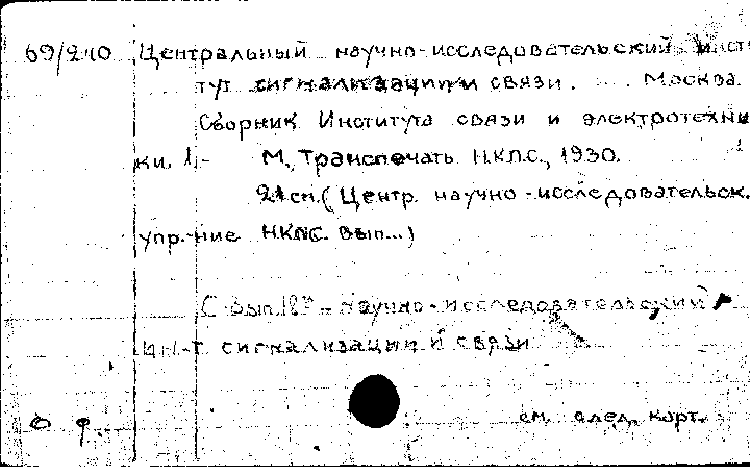 69/240 Центральный научно-исследовательский инсти
тут сигнализации и связи. Москва.
Сборник Института связи и электротехни
ки. 1,- М., Транспечать НКПС., 1930.
21 см. (Центр. научно-исследовательск.
упр-ние НКПС. вып...)
С вып. - научно-исследовательский
ин-т сигнализации и связи
см. след. карт.